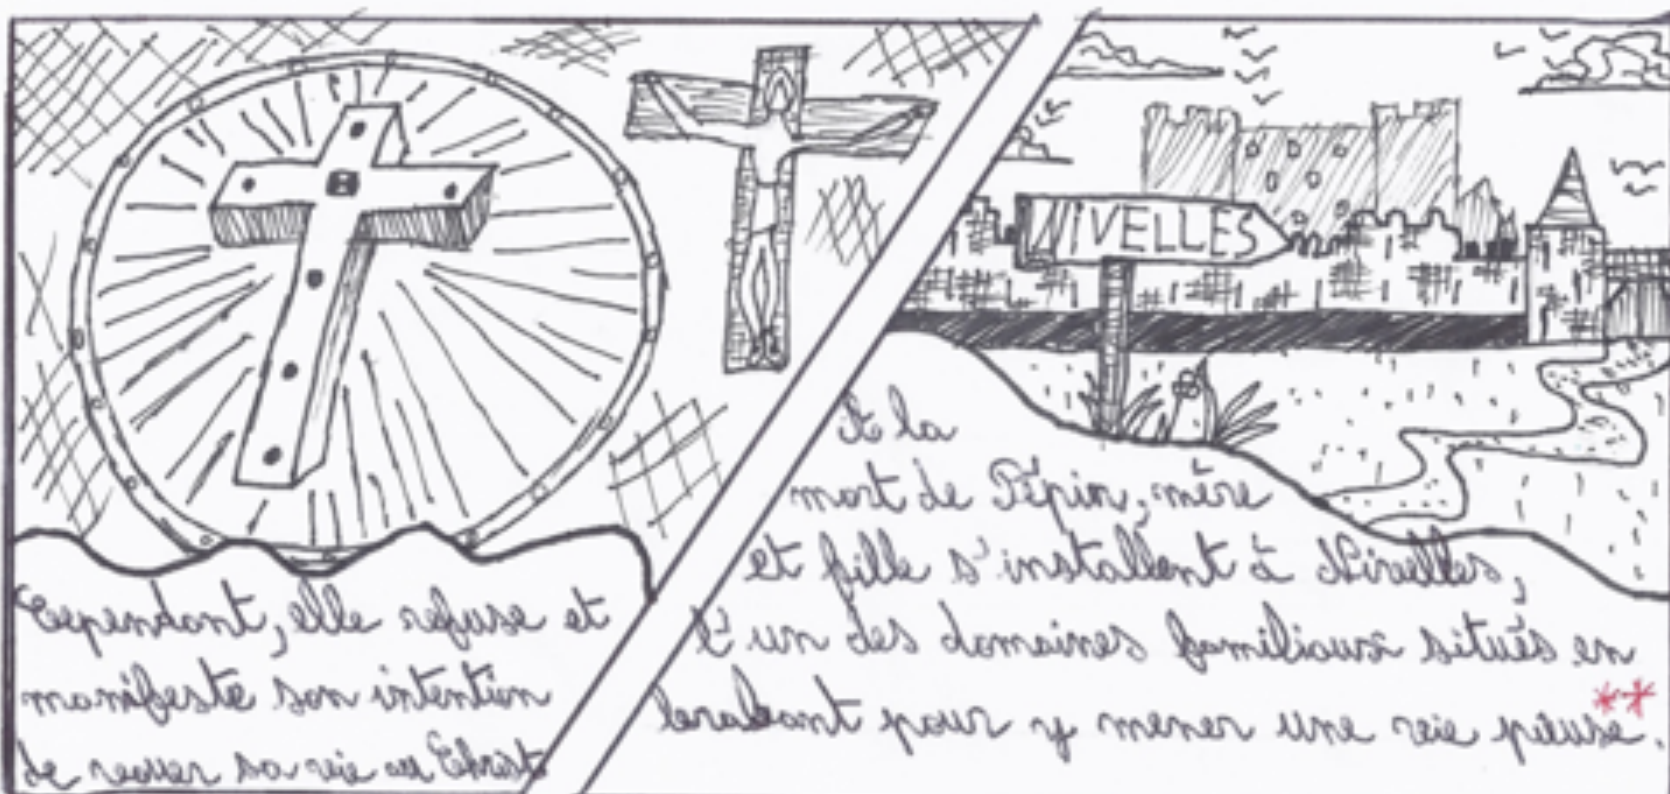 Cependant, elle refuse et
manifeste son intention
de vouer sa vie au Christ
NIVELLES
A la
mort de Pépin, mère
et fille s'installent à Nivelles,
l'un des domaines familiaux situés en
brabant pour y mener une vie pieuse.**